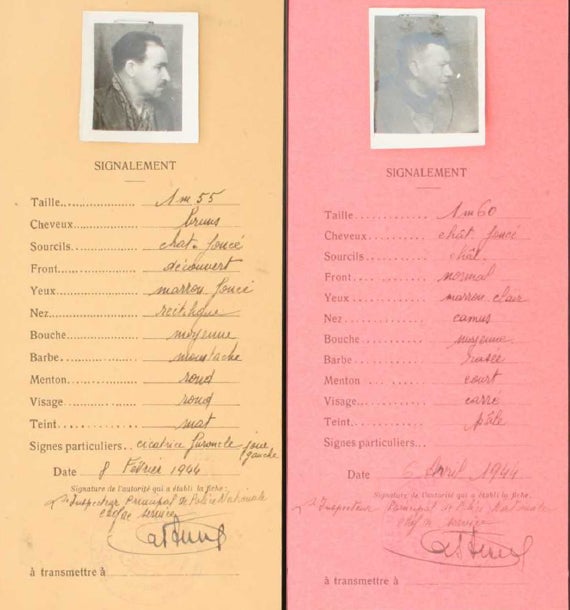 SIGNALEMENT
Taille.................. 1m55
Cheveux.............. bruns
Sourcils............... chat. foncé
Front................... découvert
Yeux.................... marron foncé
Nez...................... rectiligne
Bouche................ moyenne
Barbe.................. moustache
Menton............... rond
Visage................. rond
Teint................... mat
Signes particuliers.. cicatrice furoncle joue gauche
Date 8 Février 1944
Signature de l'autorité qui a établi la fiche:
L'Inspecteur Principal de Police Nationale
chef de service
à transmettre à
SIGNALEMENT
Taille............ 1m60
Cheveux......... chât foncé
Sourcils......... chât.
Front............ normal
Yeux............ marron clair
Nez.............. camus
Bouche......... moyenne
Barbe........... rasée
Menton ........ court
Visage.......... carré
Teint............ pâle
Signes particuliers...
Date 5 Avril 1944
Signature de l'autorité qui a établi la fiche:
L'Inspecteur Principal de Police Nationale
chef de service
à transmettre à